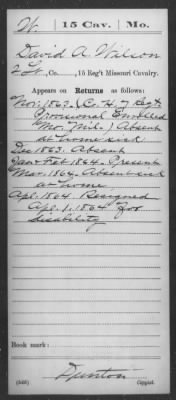 W. | 15 Cav. | Mo.
David A. Wilson
2 Lt., Co. , 15 Reg't Missouri Cavalry.
Appears on Returns as follows:
Nov. 1863. (Co. H, 7 Regt
Provisional Enrolled
Mo. Mil.) Absent
at home sick
Dec 1863. Absent
Jan & Feb 1864. Present
Mar. 1864. Absent sick
at home
Apl. 1864 Resigned
Apl. 1, 1864 for
disability
Book mark:
Dunton
(546) Copyist.